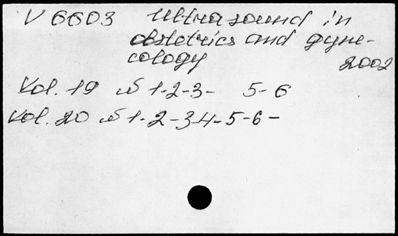 V 6603 Ultrasound in
obstetrics and gyne-
cology 2002
Vol. 19 № 1-2-3- 5-6
Vol. 20 № 1-2-3-4-5-6-